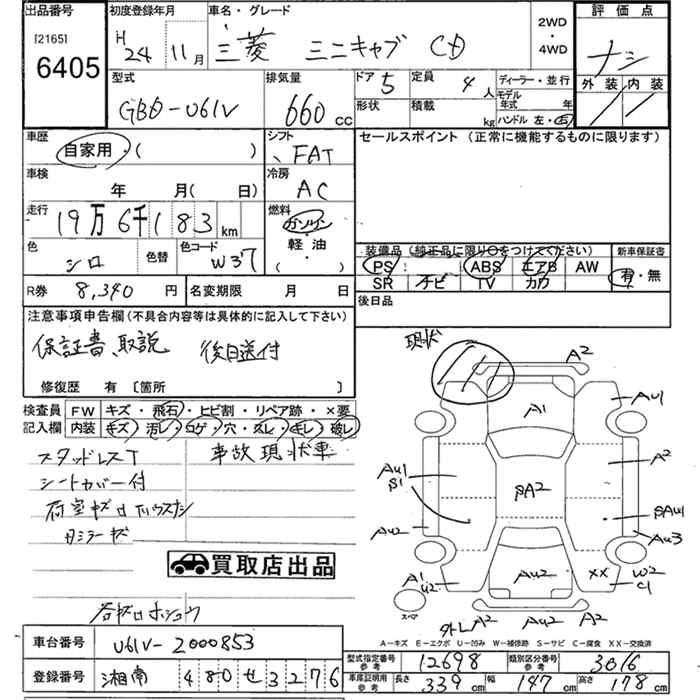 出品番号 初度登録年月 車名・グレード 2WD・4WD 評価点
[2165] H24 11月 三菱 ミニキャブ CD ナシ
6405
型式 排気量 ドア 5 定員 4人 ディーラー・並行 外装 内装
GBD-U61V 660cc 形状 積載 kg モデル年式 年
ハンドル 左・右
車歴 自家用・( ) シフト FAT セールスポイント (正常に機能するものに限ります)
車検 年 月(日) 冷房 AC
走行 19万6千183km 燃料 ガソリン
軽・油
( )
色 シロ 色替 色コード W37
装備品(純正品に限り○をつけてください) 新車保証書
PS ABS エアB AW 有・無
SR ナビ TV カワ
R券 8,340円 名変期限 月 日 後日品
注意事項申告欄(不具合内容等は具体的に記入して下さい)
保証書、取説 後日送付
修復歴 有 〔箇所 〕
検査員 FW キズ・飛石・ヒビ割・リペア跡・×要
記入欄 内装 キズ・汚レ・コゲ・穴・スレ・キレ・破レ
スタッドレスT 事故現状車
シートカバー付
荷室キズ
買取店出品
現状 A2
A1 AU1
AU1 A2
S1 SA2 SAU1
AU2 AU3
A1 U2 AU2 XX W2 C1
スペア 外し A2 AU2 A2
A−キズ E−エクボ U−凹み W−補修跡 S−サビ C−腐食 XX−交換済
車台番号 U61V-2000853
型式指定番号 参考 12698 類別区分番号 参考 3016
登録番号 湘南 480 せ 3276
車庫証明用 参考 長さ 339cm 幅 147cm 高さ 178cm